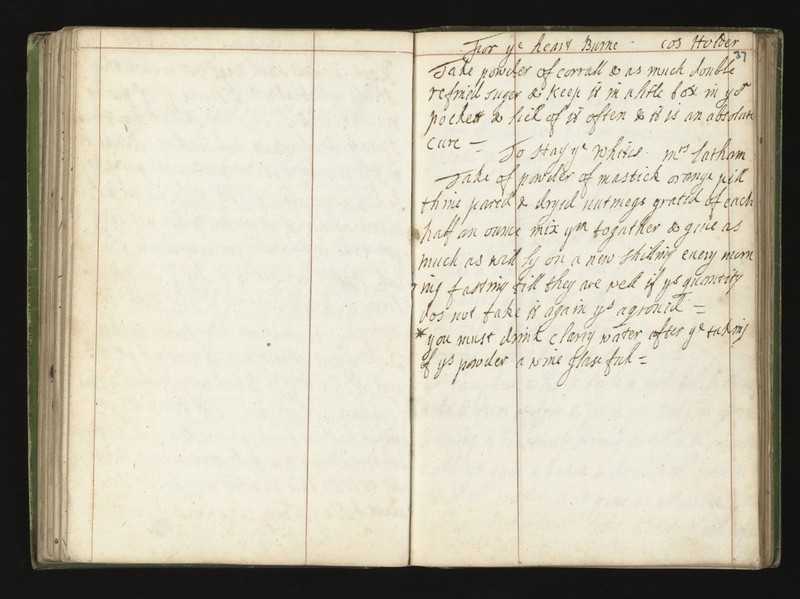 For ye heart Burne cos Holder
37
Take powder of corrall & as much double
refinid suger & keep it in a litle box in yor
pockett & lick of it often & it is an absolute
cure =
To stay ye whites. mrs Latham
Take of powder of mastick orange pill
thine pared & dryed nutmegs grated of each
half an ounce mix ym togather & give as
much as will ly on a new shilling every morn
ing fasting till they are well if ys quantity
dos not take it again ys aproved =
*you must drink clary water after ye taking
of ys powder a wine glase full =